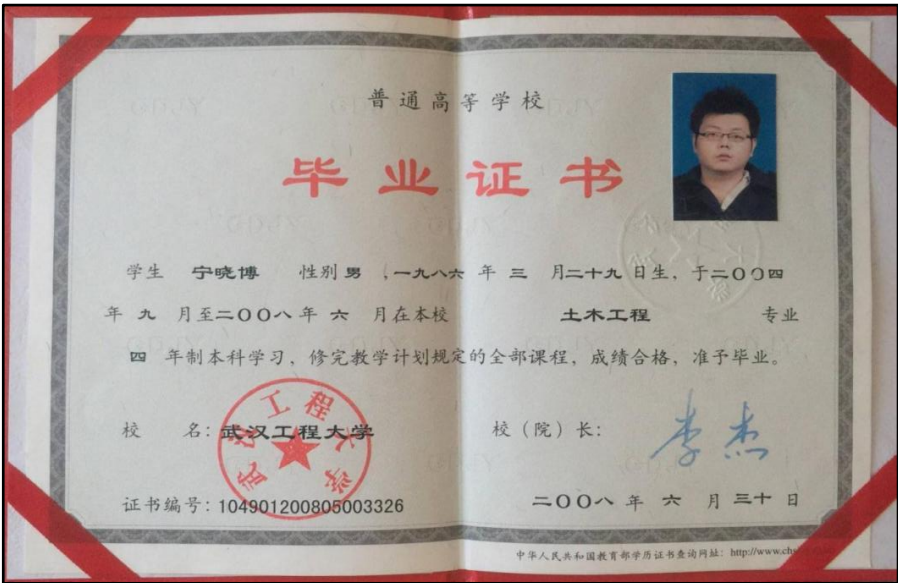 普通高等学校
毕业证书
学生 宁晓博 性别 男 ,一九八六 年 三 月二十九 日生, 于二〇〇四
年 九 月至二〇〇八 年 六 月在本校 土木工程 专业
四 年制本科学习, 修完教学计划规定的全部课程, 成绩合格, 准予毕业。
校 名: 武汉工程大学 校（院）长: 李杰
武汉工程大学
证书编号: 104901200805003326 二〇〇八 年 六 月 三十 日
中华人民共和国教育部学历证书查询网址: http://www.